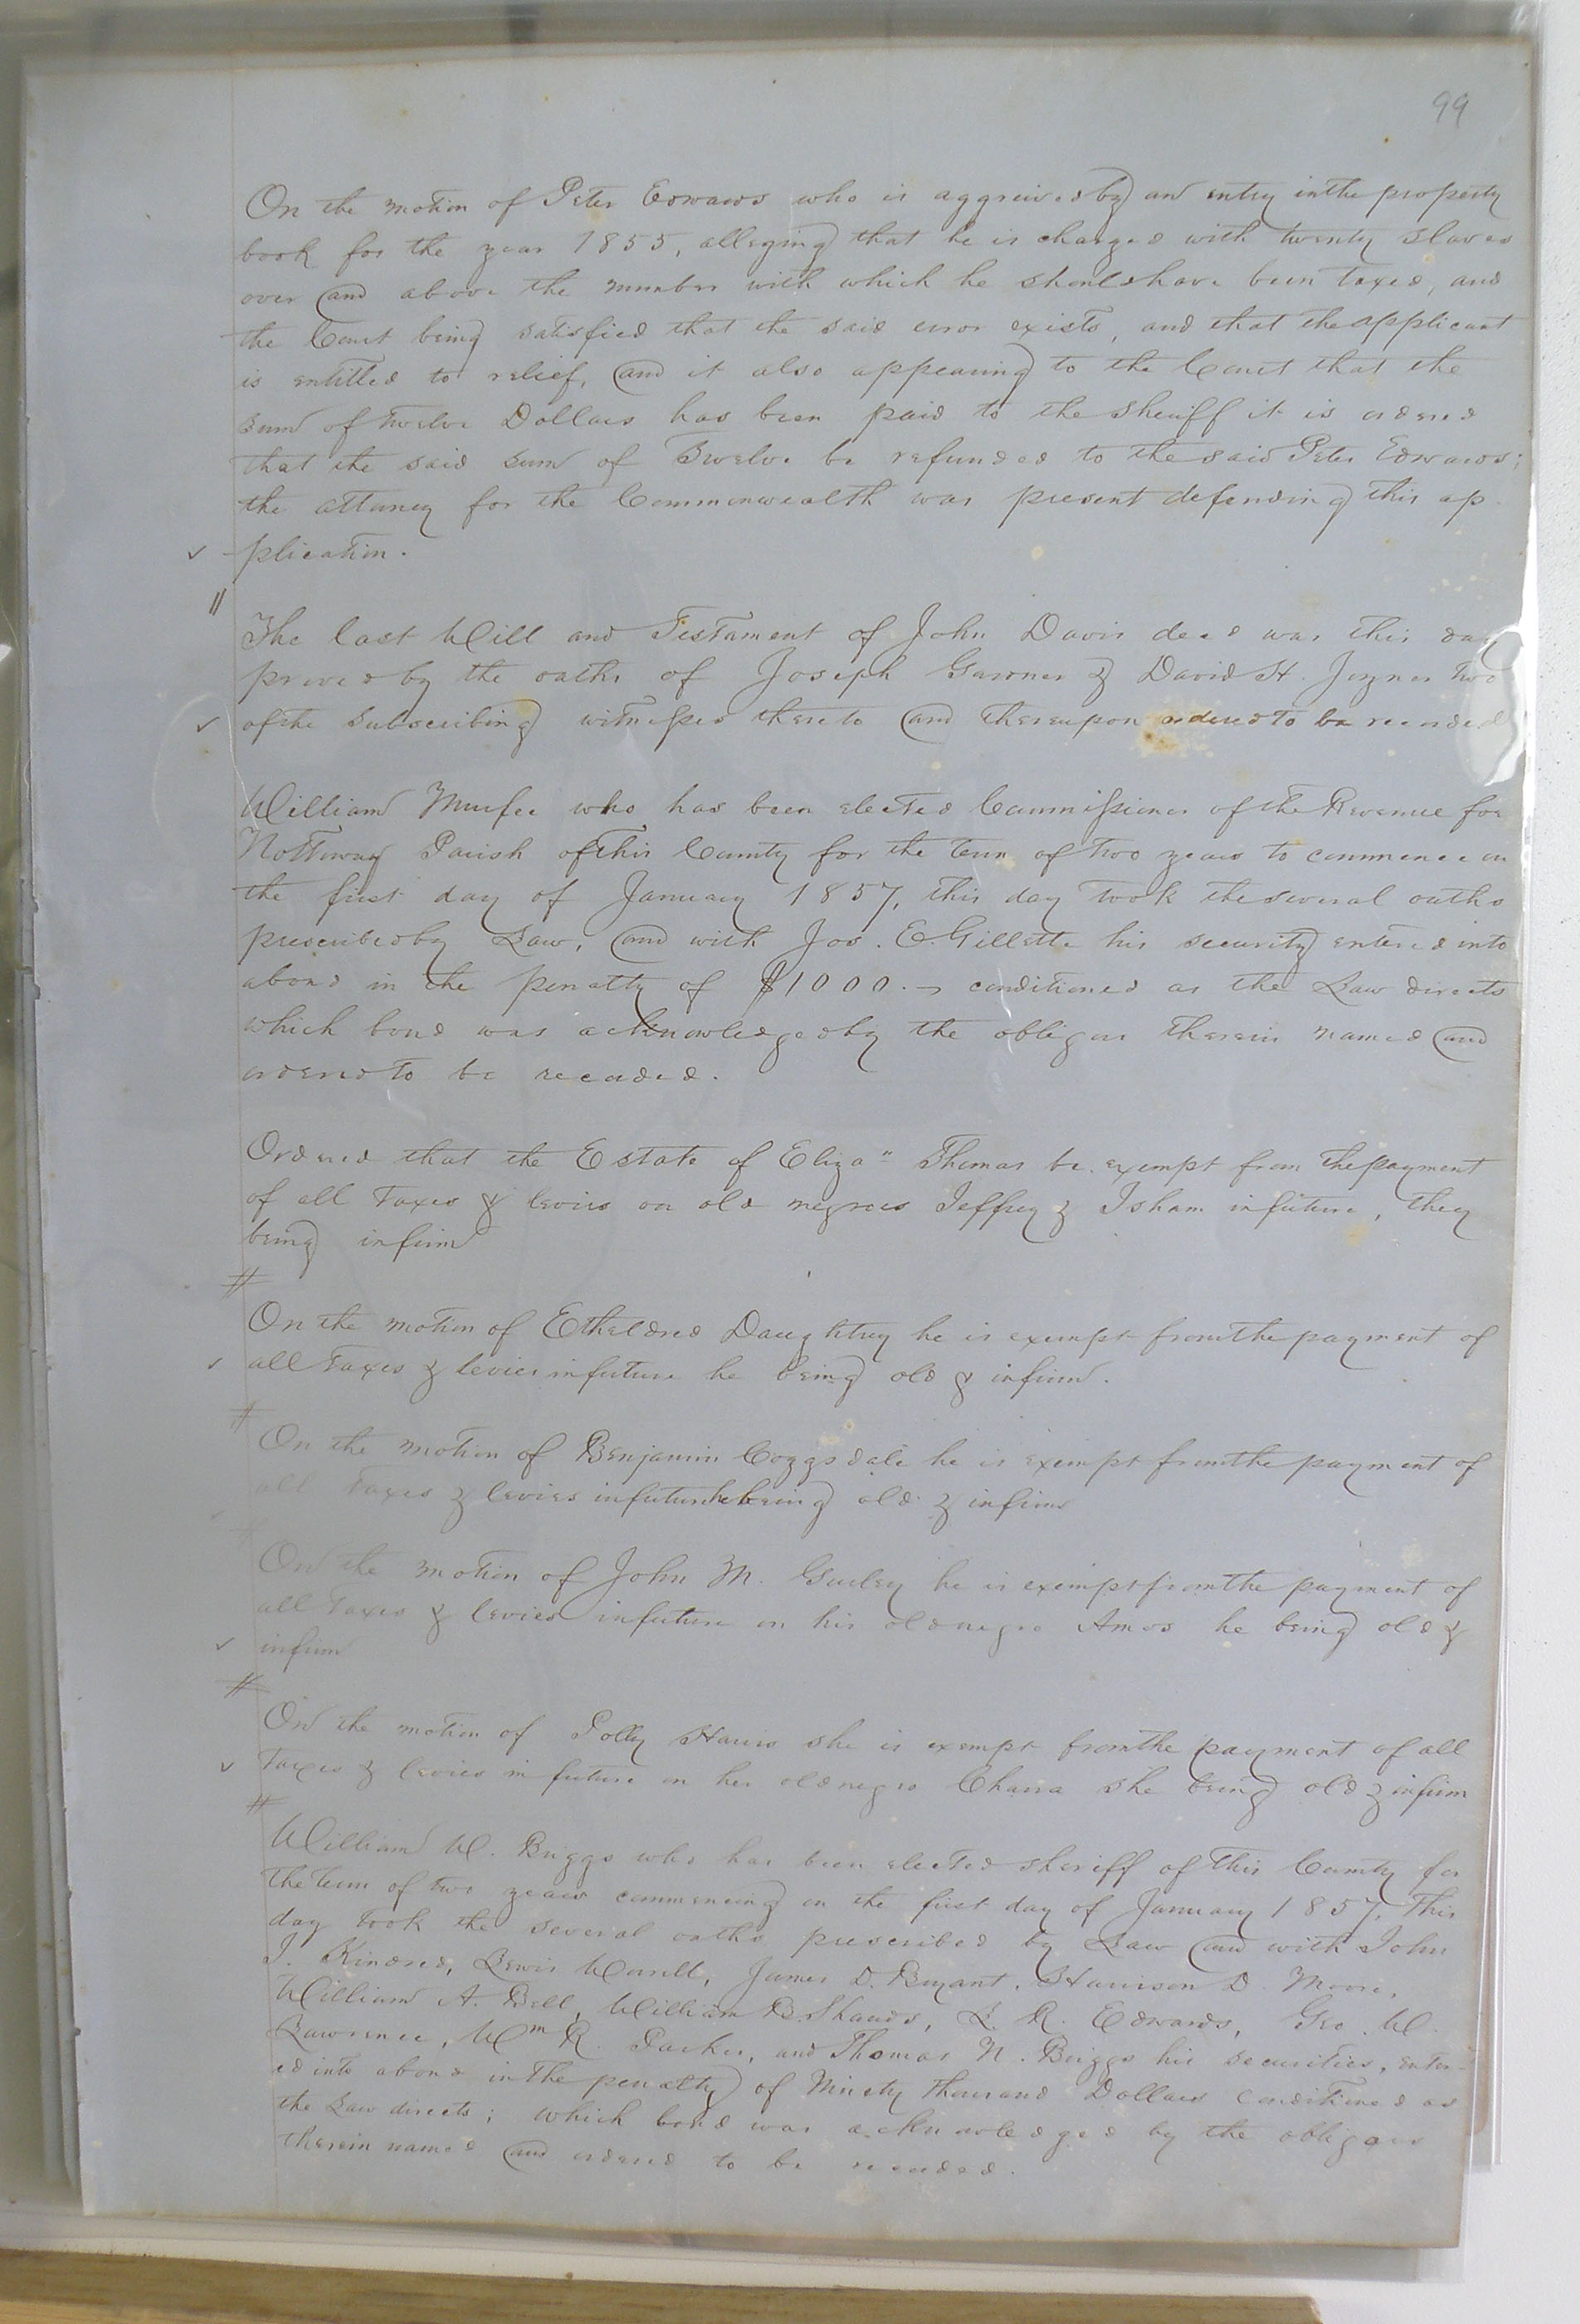 99
On the motion of Peter Edwards who is aggreived by an entry in the property
book for the year 1855, alleging that he is charged with twenty slaves
over and above the number with which he should have been taxed, and
the Court being satisfied that the said error exists, and that the applicant
is entitled to relief, and it also appearing to the Court that the
sum of twelve Dollars has been paid to the sheriff it is ordered
that the said sum of Twelve be refunded to the said Peter Edwards;
the attorney for the Commonwealth was present defending this ap
plication.
The last Will and Testament of John Davis decd was this day
proved by the oaths of Joseph Garner & David H. Joyner two
of the subscribing witnesses thereto and thereupon ordered to be recorded
William Murfee who has been elected Commissioner of the Revenue for
Nottoway Parish of this County for the term of two years to commence on
the first day of January 1857, this day took the several oaths
prescribed by Law, and with Jos. E. Gillette his security entered into
a bond in the penalty of $1000.– conditioned as the Law directs
which bond was acknowledged by the obligors therein named and
ordered to be recorded.
Ordered that the Estate of Eliza" Thomas be exempt from the payment
of all Taxes & levies on old negroes Jeffrey & Isham in future, they
being infirm
On the motion of Etheldred Daughtrey he is exempt from the payment of
all Taxes & levies in future he being old & infirm.
On the motion of Benjamin Coggsdale he is exempt from the payment of
all Taxes & levies in future he being old & infirm
On the motion of John M. Gurley he is exempt from the payment of
all Taxes & levies in future on his old negro Amos he being old &
infirm
On the motion of Polly Harris she is exempt from the payment of all
Taxes & levies in future on her old negro she being old & infirm
William W. Briggs who has been elected sheriff of this County for
the term of two years commencing on the first day of January 1857, This
day took the several oaths prescribed by Law and with John
J. Kindred, Lewis Worrell, James D. Bryant, Harrison D. Moore,
William A. Bell, William B. Shands, L. R. Edwards, Geo. W.
Lawrence, Wm R. Parker, and Thomas N. Briggs his securities, enter-
ed into a bond in the penalty of Ninety thousand Dollars conditioned as
the Law directs; which bond was acknowledged by the obligors
therein named and ordered to be recorded.